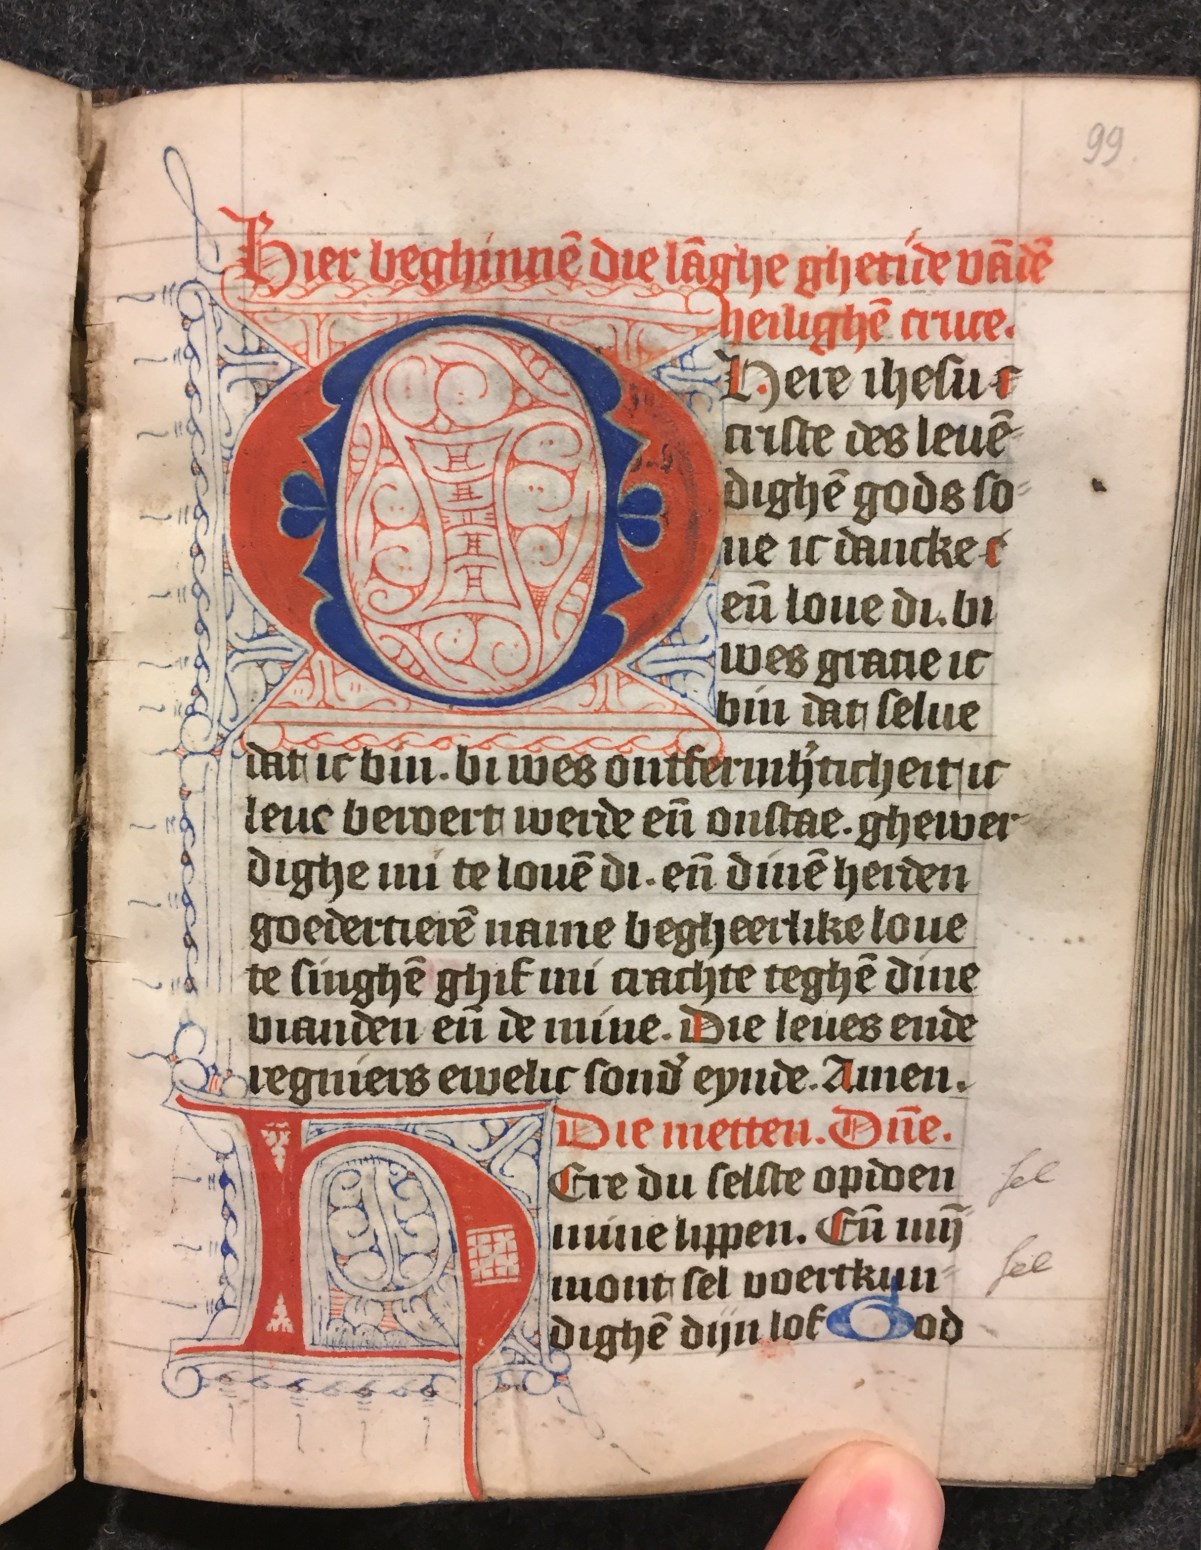 99
Hier beghinnē die lāghe ghetide vādē
heilighē cruce.
O Here ihesu
criste des leuē
dighē gods so
ne ic dancke
eñ loue di. bi
wes gratie ic
bin dat selue
dat ic bin. bi wes ontfermh'ticheit ic
leue beroert werde eñ onstae. ghewer
dighe mi te louē di. eñ dinē heiden
goedertierē name begheerlike loue
te singhē ghif mi crachte teghē dine
vianden eñ de mine. Die leues ende
regniers ewelic sond' eynde. Amen.
Die metten. Dn̄e.
HEre du selste opdoen
mine lippen. Eñ mij
mont sel voertkun
dighē dijn lof God
sel
sel